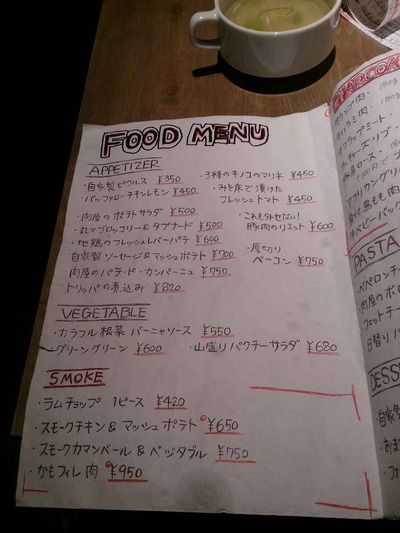 FOOD MENU
APPETIZER
・自家製ピクルス ¥350
・バッファローチキンレモン ¥450
・3種のキノコのマリネ ¥450
・みそ床で漬けた
フレッシュトマト ¥450
・肉屋のポテトサラダ ¥500
・丸々ブロッコリー&タプナード ¥500
・地鶏のフレッシュレバーパテ ¥600
自家製ソーセージ&マッシュポテト ¥700
・肉屋のパテ・ド・カンパーニュ ¥750
・トリッパの煮込み ¥820
・これも外せない!
豚肉のリエット ¥600
・厚切り
ベーコン ¥750
VEGETABLE
・カラフル根菜 バーニャソース ¥550
・グリーングリーン ¥600
・山盛りパクチーサラダ ¥680
SMOKE
・ラムチョップ 1ピース ¥420
・スモークチキン&マッシュポテト ¥650
・スモークカマンベール&ベジタブル ¥750
・かもフィレ肉 ¥950
CHARCOA
180g
PASTA
・ペペロンチ
・肉屋のボロ
・フェットチー
・日替りパ
DESSE
自家製